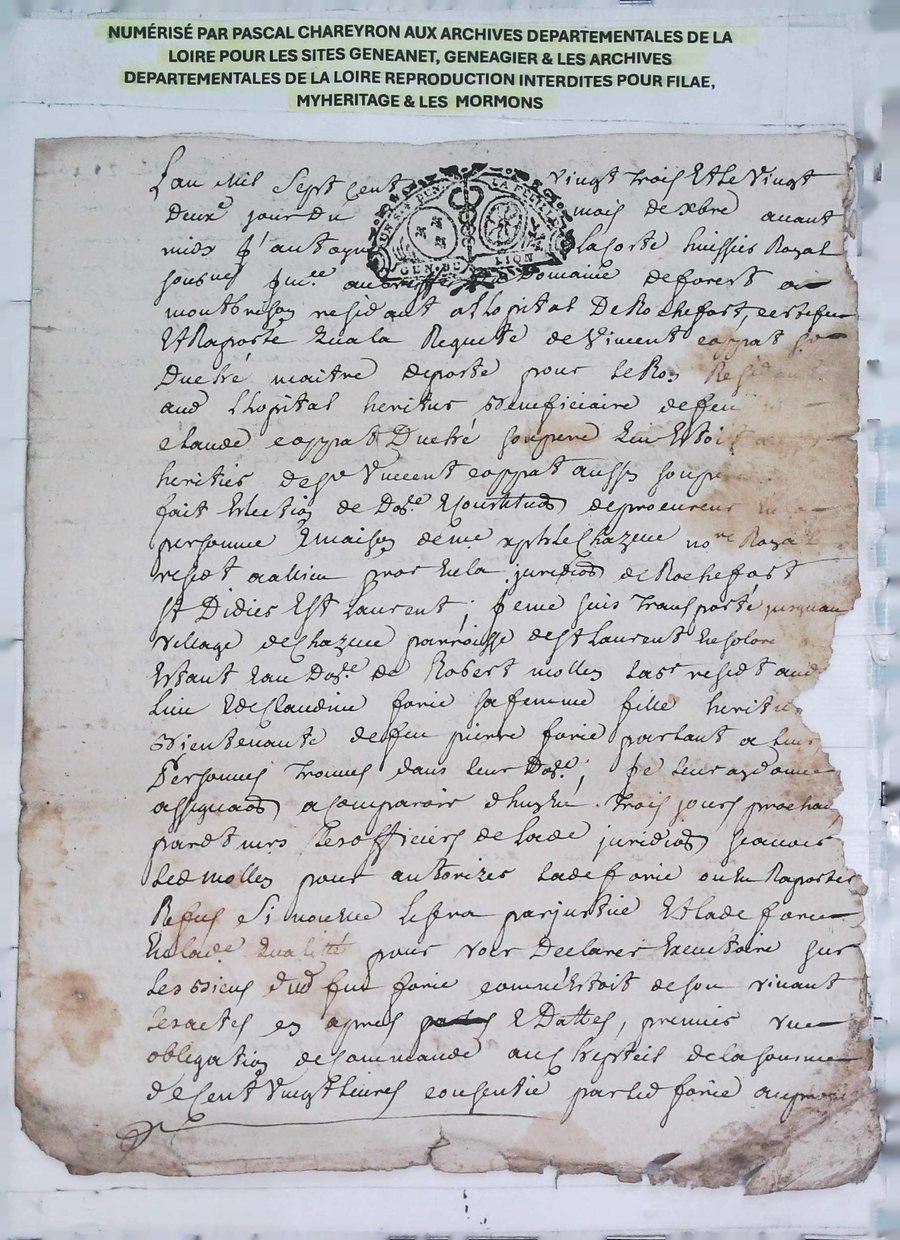 NUMÉRISÉ PAR PASCAL CHAREYRON AUX ARCHIVES DEPARTEMENTALES DE LA
LOIRE POUR LES SITES GENEANET, GENEAGIER & LES ARCHIVES
DEPARTEMENTALES DE LA LOIRE REPRODUCTION INTERDITES POUR FILAE,
MYHERITAGE & LES MORMONS
Lan Mil Sept Cent vingt trois Et le vingt
deuxe jour du mois de xbre avant
midy J'antoyne Laforte huissier Royal
domaine de forest
montbrison residant a Lhopital De Rochefort, certifie
Et Raporté qua la Requete de Vincent coppat
Duclré maitre de poste pour le Roy Resid
aud Lhopital heritier Beneficiaire de feu
claude coppat Duclré son pere
heritier de Sr Vincent coppat aussy son
fait Election de Dole de procureur
personne maison de me Chazeue nore Roya
resdt a allieu procr en la juridion de Rochefort
St Didier Est Laurent ; Je me suis Transporté jusquau
village de Chazeue parroisse de St Laurent
Estant au Dole de Robert mollen Labr residt aud
Lieu & de Claudine forie sa femme fille heritie
Bientenante de feu pierre forie parlant a leur
Personnes Trouvés dans leur Dole ; Je leur ay donne
assignaon a comparoir dhuy en Trois jours prochai
pardt mrs Les officiers de lade juridion scavoir
Led mollen pour autorizer Lade forie ou En Raporter
Refus Si non Le Sera par justice Et lade forie
En lade qualité pour voir Declarer Executoire sur
Les Biens dud feu forie comme Estoit de son vivant
Les actes cy apres & Dattes, premier une
obligation de commande au Chepteil de la somme
de Cent Vingt Livres consentie par led forie au